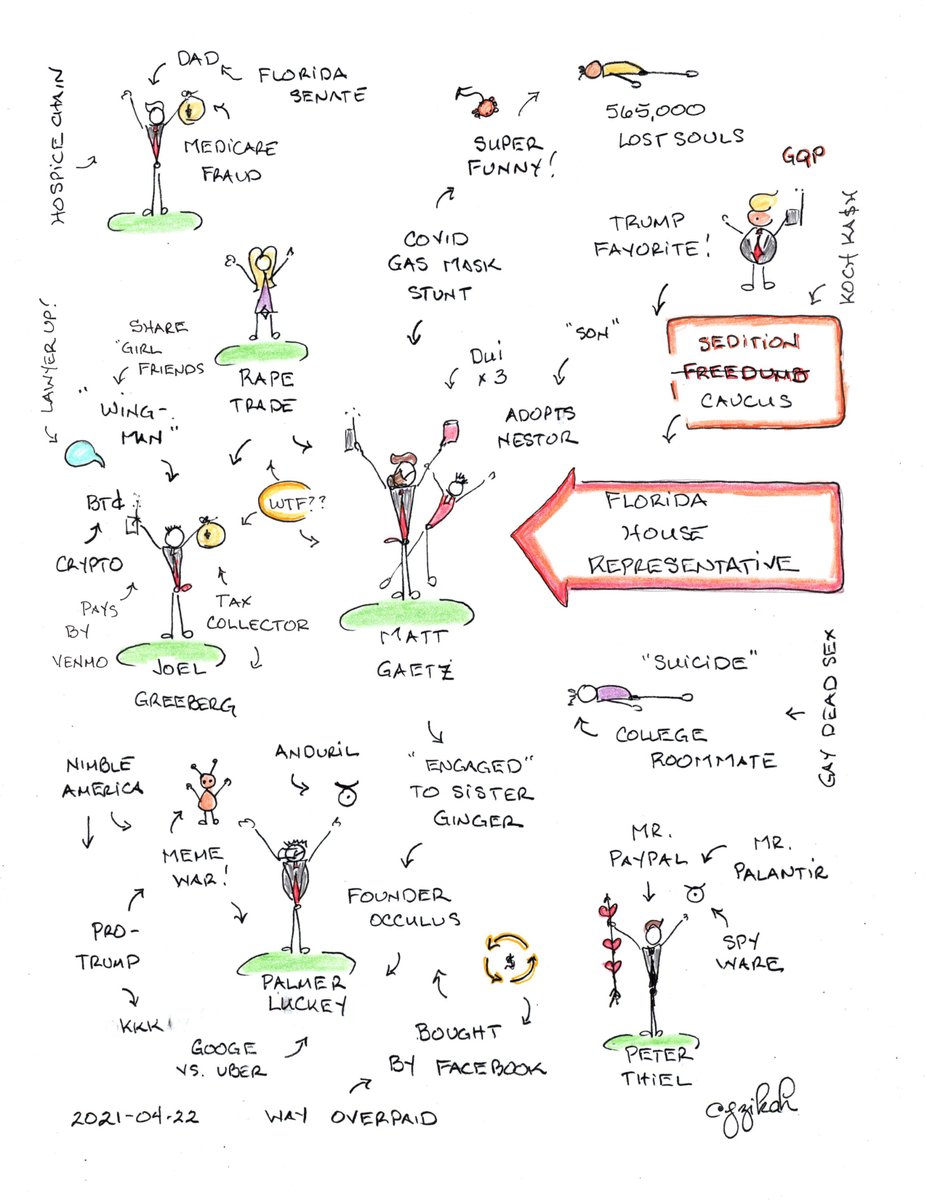 DAD
FLORIDA
SENATE
HOSPICE CHAIN
$
MEDICARE
FRAUD
SUPER
FUNNY!
565,000
LOST SOULS
GQP
TRUMP
FAVORITE!
KOCH KA$H
COVID
GAS MASK
STUNT
LAWYER UP!
SHARE
"GIRL
FRIENDS
RAPE
TRADE
"WING-
MAN"
DUI
x 3
"SON"
ADOPTS
NESTOR
SEDITION
FREEDUMB
CAUCUS
WTF??
BTC
CRYPTO
$
PAYS
BY
VENMO
TAX
COLLECTOR
JOEL
GREEBERG
MATT
GAETZ
FLORIDA
HOUSE
REPRESENTATIVE
"SUICIDE"
COLLEGE
ROOMMATE
GAY DEAD SEX
NIMBLE
AMERICA
ANDURIL
"ENGAGED"
TO SISTER
GINGER
MEME
WAR!
FOUNDER
OCCULUS
MR.
PAYPAL
MR.
PALANTIR
SPY
WARE
PRO-
TRUMP
KKK
PALMER
LUCKEY
$
GOOGE
VS. UBER
BOUGHT
BY FACEBOOK
PETER
THIEL
2021-04-22
WAY OVERPAID